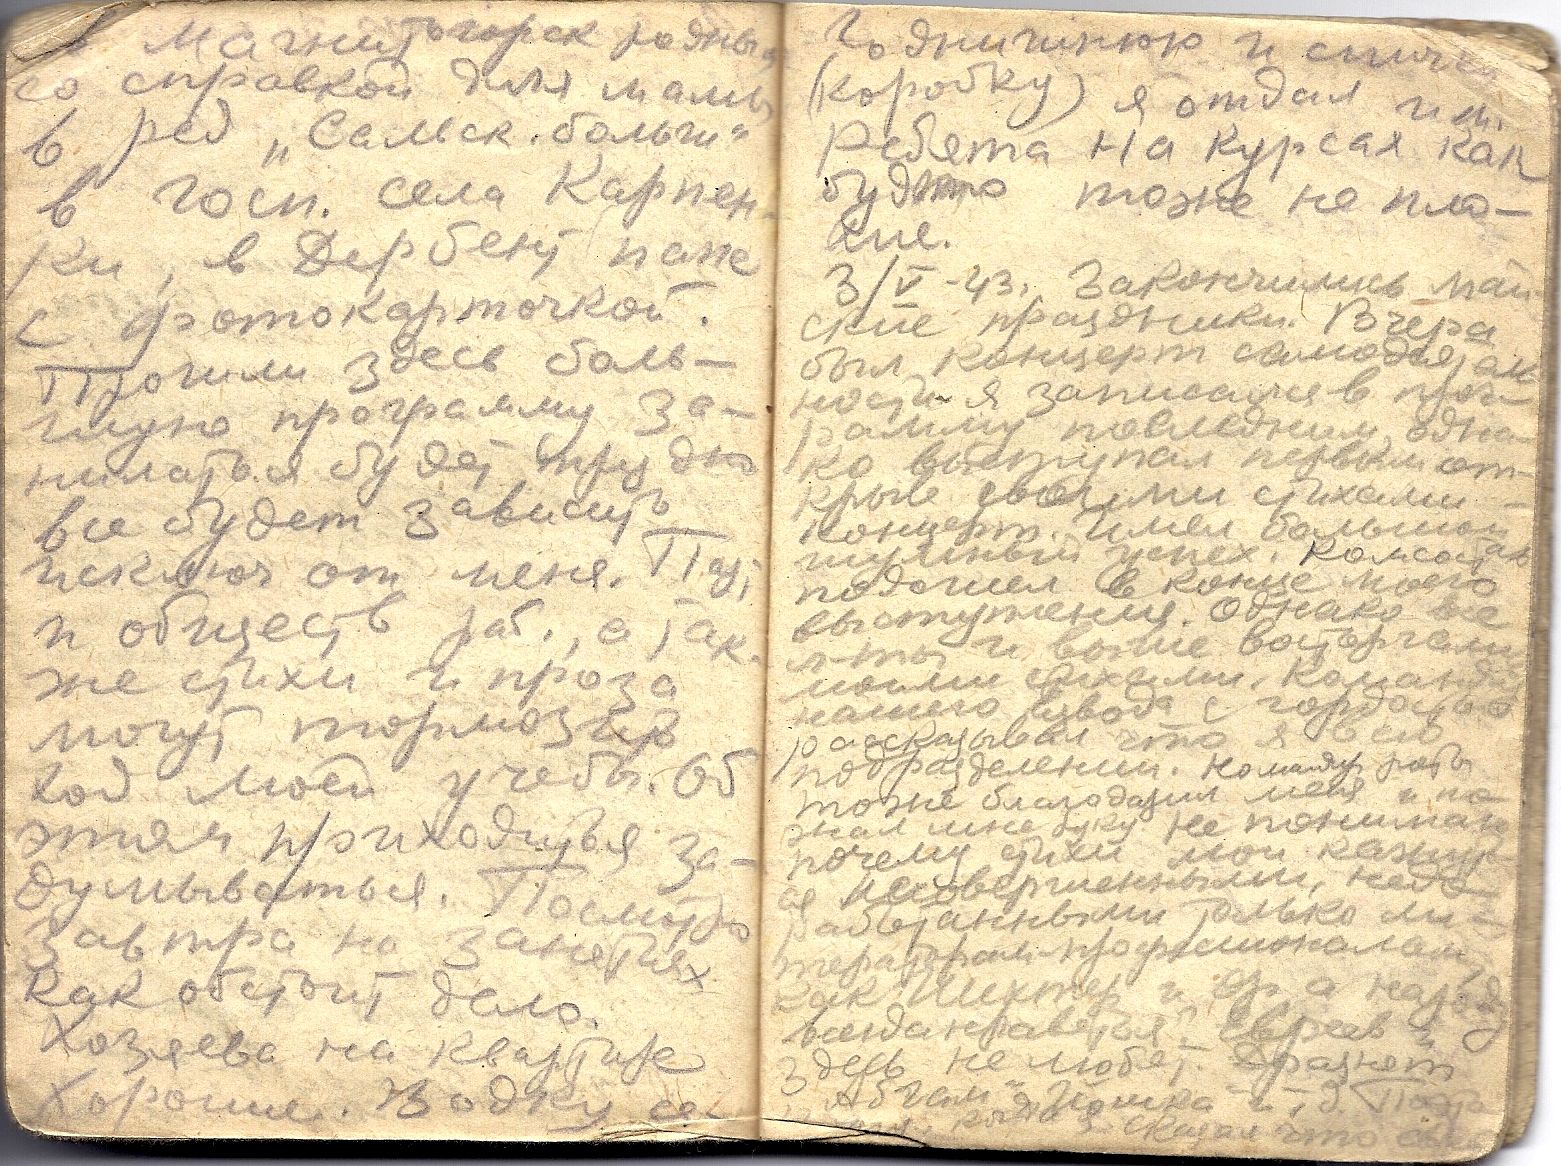 в Магнитогорск родным
со справкой для мамы
в ред „Сальск. больш"
в госп. села Карпен-
ки, в Дербент папе
с фотокарточкой.
Прошли здесь боль-
шую программу за-
ниматься будет трудно
все будет зависить
исключ от меня. Парт
и обществ раб., а так-
же стихи и проза
могут тормозить
ход моей учебы. Об
этом приходиться за-
думываться. Посмотрю
завтра на занятиях
как обстоит дело.
Хозяева на квартире
хорошие. Водку се-
годнишнюю и спички
(коробку) я отдал им.
Ребята на курсах как
будто тоже не пло-
хие.
3/V-43. Закончились май-
ские праздники. Вчера
был концерт самодеятель
ности. я записался в прог-
рамму последним, одна-
ко выступал первым от-
крыв своими стихами -
концерт. Имел большой
шумный успех. Комсостав
подошел в конце моего
выступления. Однако все
л-ты и выше восторгались
моими стихами. Командир
нашего взвода с гордостью
рассказывал что я в его
подразделении. Команд роты
тоже благодарил меня и по-
жал мне руку. Не понимаю
почему стихи мои кажут-
ся несовершенными, необ-
работанными только ли-
тераторам-профессионалам
как Шихтер и др а народу
всегда нравятся. Евреев
здесь не любят. Дразнят
„Абгам" и т. д. Поэто
му, когда я сказал что